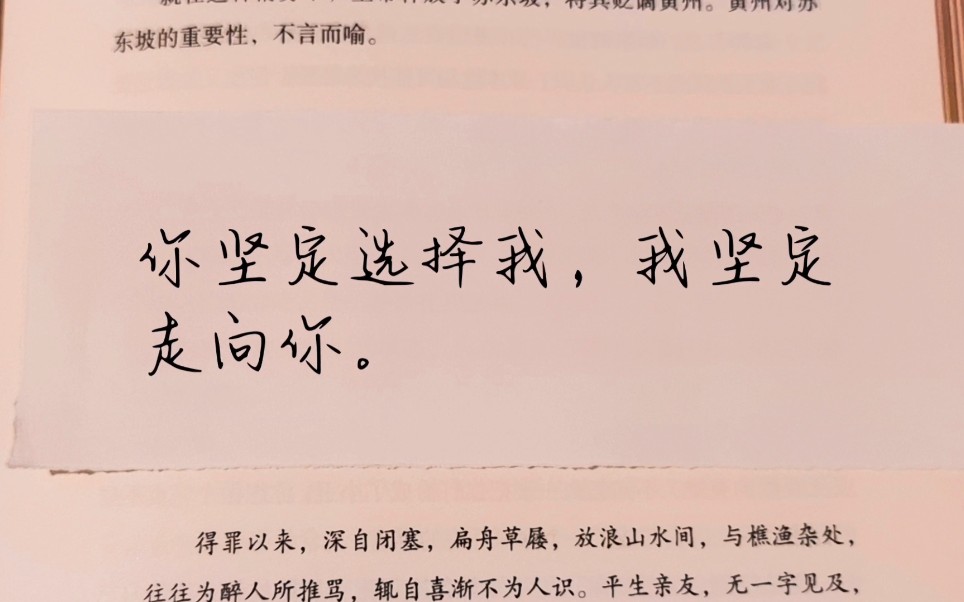 就在这样的情况下，皇帝释放了苏东坡，将其贬谪黄州。黄州对苏
东坡的重要性，不言而喻。
你坚定选择我，我坚定
走向你。
得罪以来，深自闭塞，扁舟草屦，放浪山水间，与樵渔杂处，
往往为醉人所推骂，辄自喜渐不为人识。平生亲友，无一字见及，